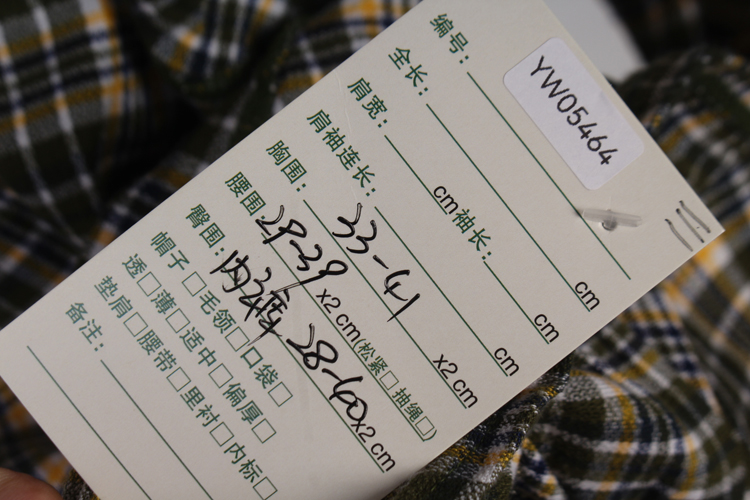 编号:
YW05464
全长: cm
肩宽: cm 袖长: cm
肩袖连长: cm
胸围: 33-41 x2 cm
腰围: 29-39 x2 cm(松紧□ 抽绳□)
臀围: 28-60 x2 cm
帽子□ 毛领□ 口袋□
透□ 薄□ 适中□ 偏厚□
垫肩□ 腰带□ 里衬□ 内标□
备注: